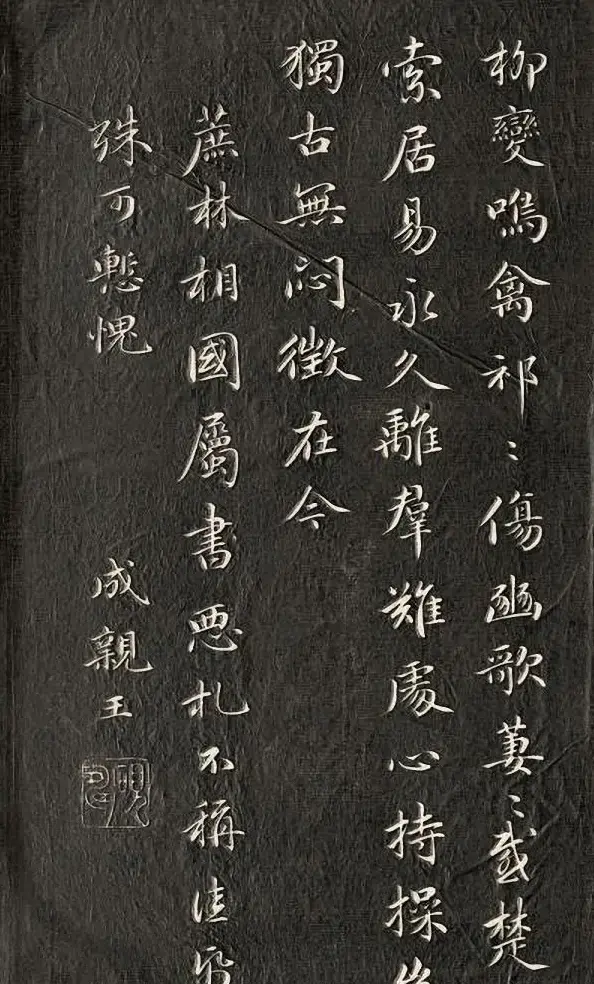 柳變鳴禽祁〻傷豳歌萋〻感楚
索居易永久離羣難處心持操
獨古無悶徵在今
蔗林相國屬書惡札不稱佳
殊可慙愧
成親王